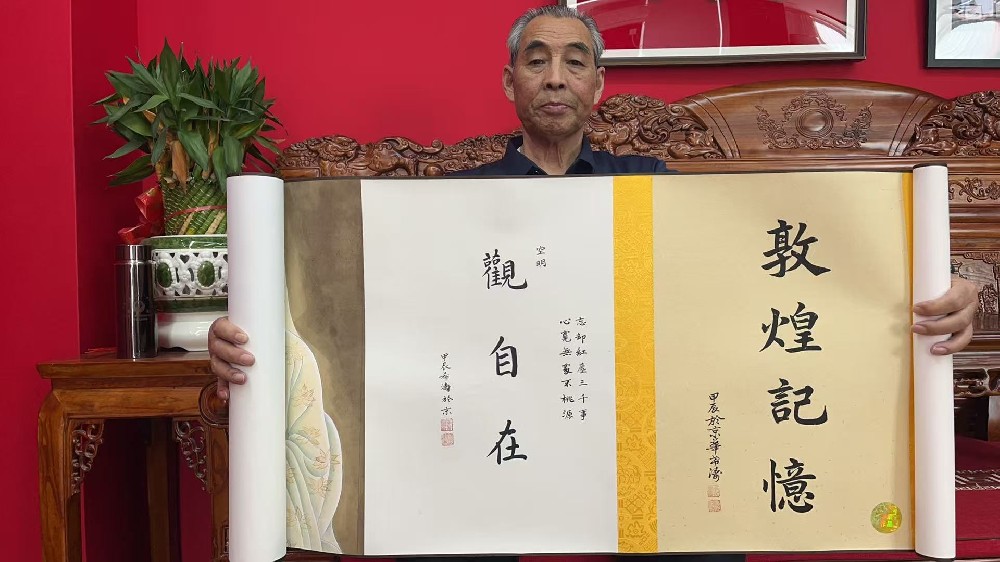 敦煌記憶
甲辰於京華
空明
忘却紅塵三千事
心寬無處不桃源
觀自在
甲辰 於京